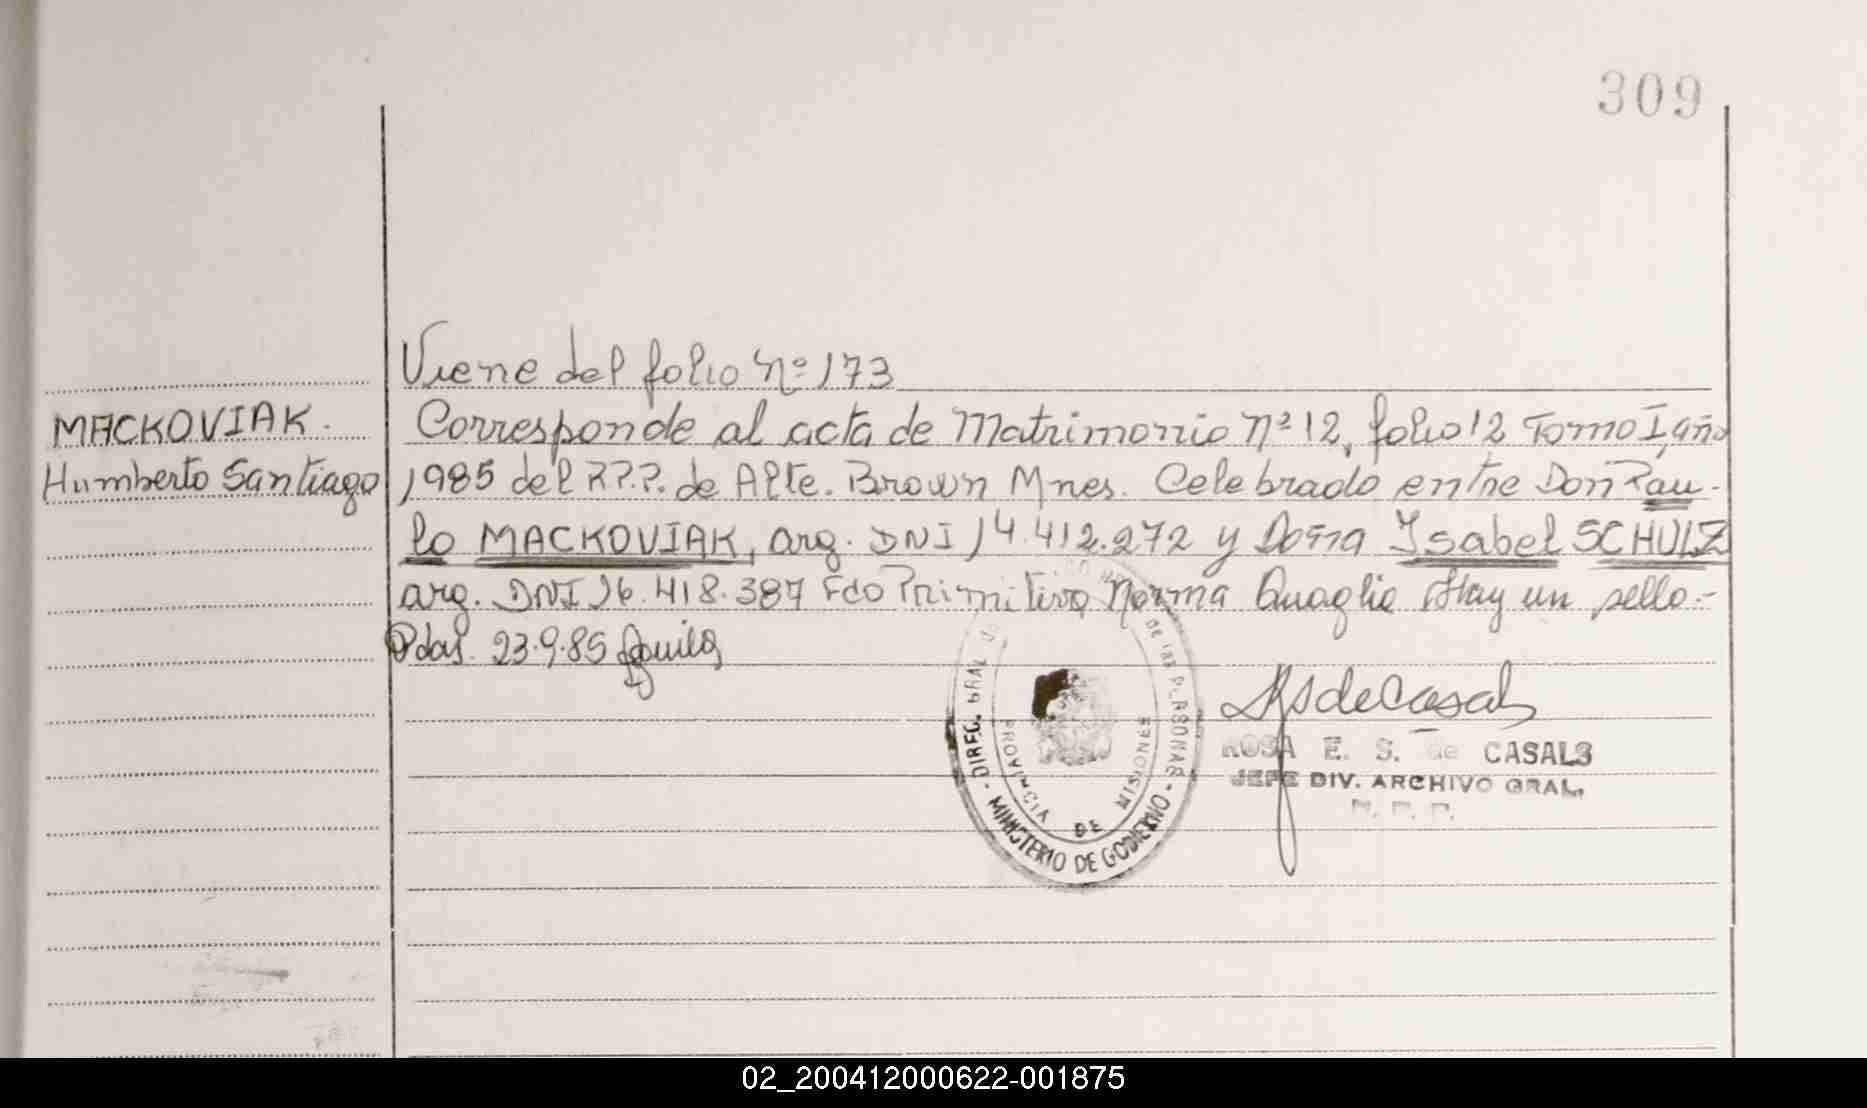 309
Viene del folio nº 173
MACKOVIAK.
Humberto Santiago
Corresponde al acta de Matrimonio nº 12, folio 12 Tomo I, año
1985 del R.P.P. de Alte. Brown Mnes. Celebrado entre Don Pau-
lo MACKOVIAK, arg. DNI 14.412.272 y Doña Ysabel SCHULZ
arg. DNI 16.418.387 Fdo Primitiva Norma Quaglia Hay un sello.-
Pdas. 23.9.85
DIREC. GRAL DE LAS PERSONAS - MINISTERIO DE GOBIERNO -
PROVINCIA DE MISIONES
RS de Casals
ROSA E. S. de CASALS
JEFE DIV. ARCHIVO GRAL.
R. P. P.
02_200412000622-001875